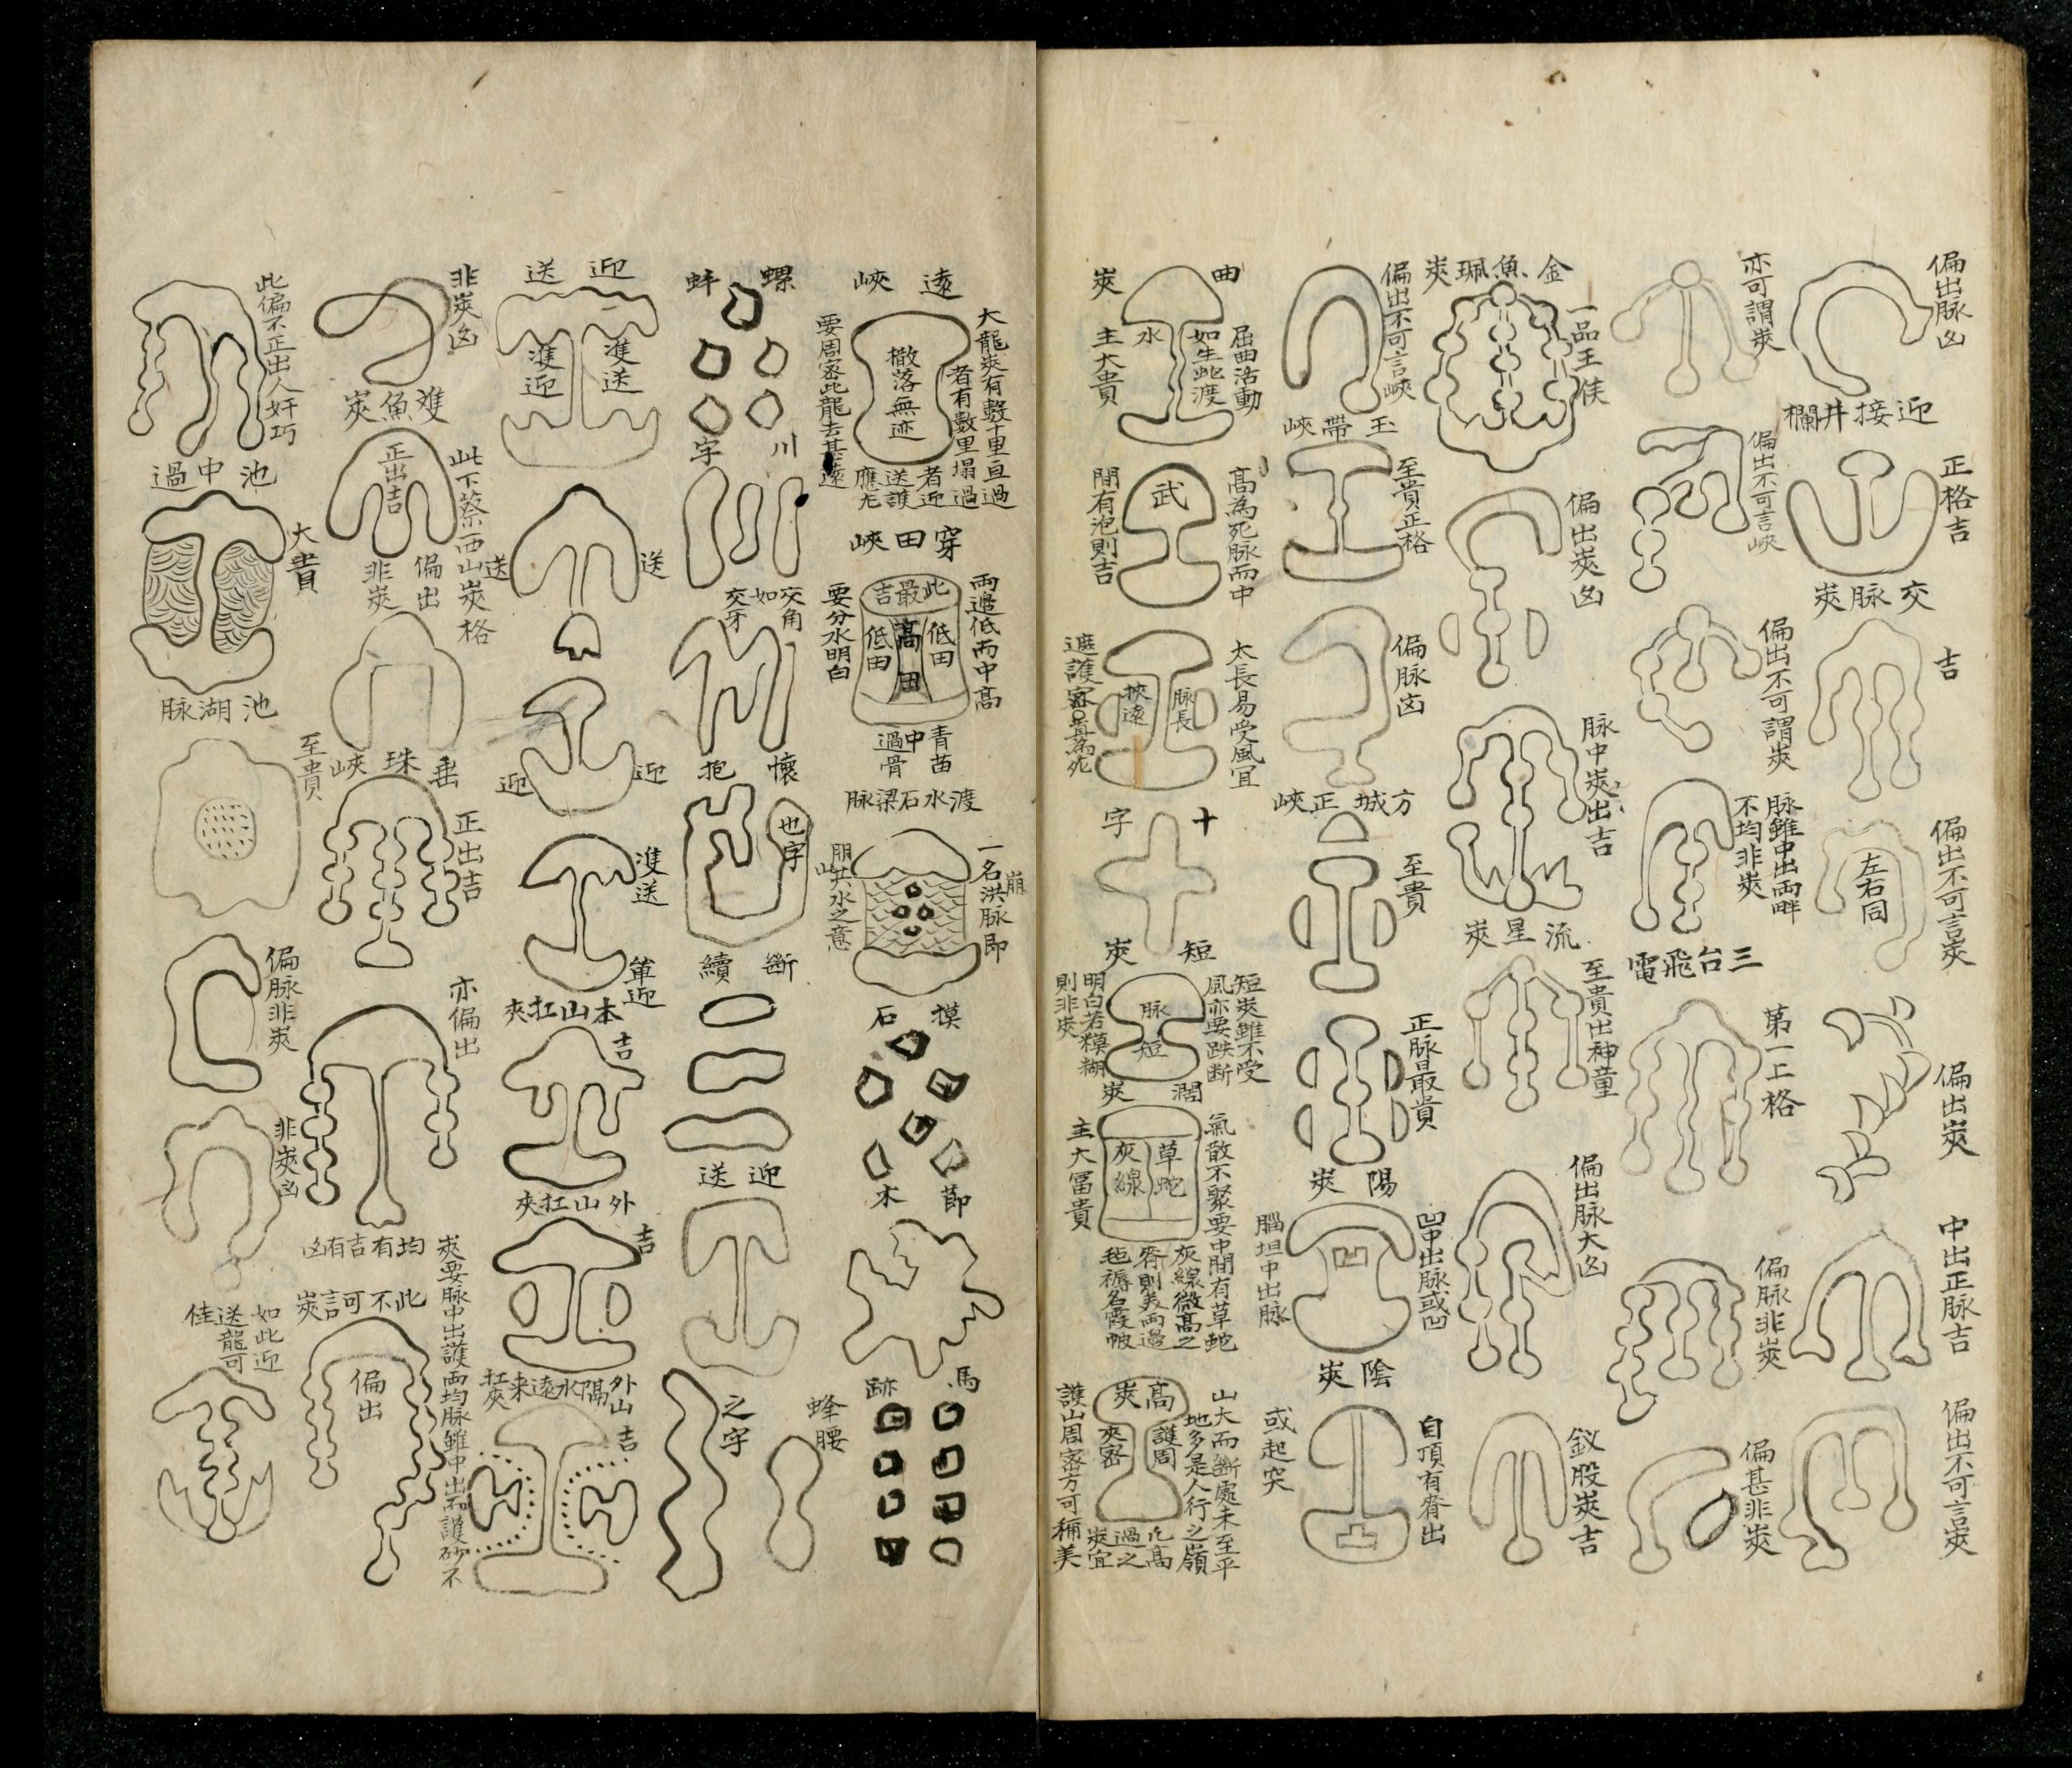 偏出脉凶
迎接井欄
正格吉
交脉峽
吉
偏出不可言峽
左右同
偏出峽
中出正脉吉
偏出不可言峽
亦可謂峽
偏出不可言峽
偏出不可謂峽
脉雖中出兩畔
不均非峽
三台飛電
第一上格
偏脉非峽
偏甚非峽
金魚珮峽
一品王侯
偏出峽凶
脉中峽出吉
流星峽
至貴出神童
偏出脉大凶
釵股峽吉
偏出不可言峽
玉帶峽
至貴正格
偏脉凶
方城正峽
至貴
正脉最貴
陽峽
凹中出脉或凹
凹
腦坦中出脉
陰峽
自頂有脊出
凸
或起突
曲峽
屈曲活動
如生蛇渡
水
主大貴
武
高為死脉而中
間有泡則吉
太長易受風宜
脉長
峽遠
十字
短峽
短峽雖不受
風亦要跌断
脉短
明白若糢糊
則非峽
濶峽
氣散不聚要中間有草蛇
灰線微高之
脊則美兩邊
毡褥名霞帔
草蛇
灰線
主大富貴
高峽
山大而斷處未至平
地多是人行之嶺
護周
夾密
凡高
過之
峽宜
護山周密方可稱美
遠峽
大龍峽有數十里亘過
者有數里塌過
者迎
送護
應尤
撒落無迹
要周密此龍去甚遠
穿田峽
兩邉低而中高
此最吉
低田
高田
低田
要分水明白
青苗
中過
骨
渡水石梁脉
一名洪脉即
崩
崩洪水之意
摸石
節木
馬跡
螺蚌
川字
交角
如
交牙
懷抱
也字
斷續
迎送
之字
蜂腰
迎送
雙送
雙迎
送
送
迎
迎
雙送
單迎
本山扛夾
吉
外山扛夾
吉
外山
隔水遠来
扛夾
吉
非峽凶
雙魚峽
正出吉
此下蔡西山峽格
偏出
非峽
垂珠峽
正出吉
亦偏出
均有吉有凶
峽要脉中出護兩均脉雖中出不護砂不
此不可言峽
偏出
此偏不正出人奸巧
池中過
大貴
池湖脉
至貴
偏脉非峽
非峽凶
如此迎
送龍可
佳